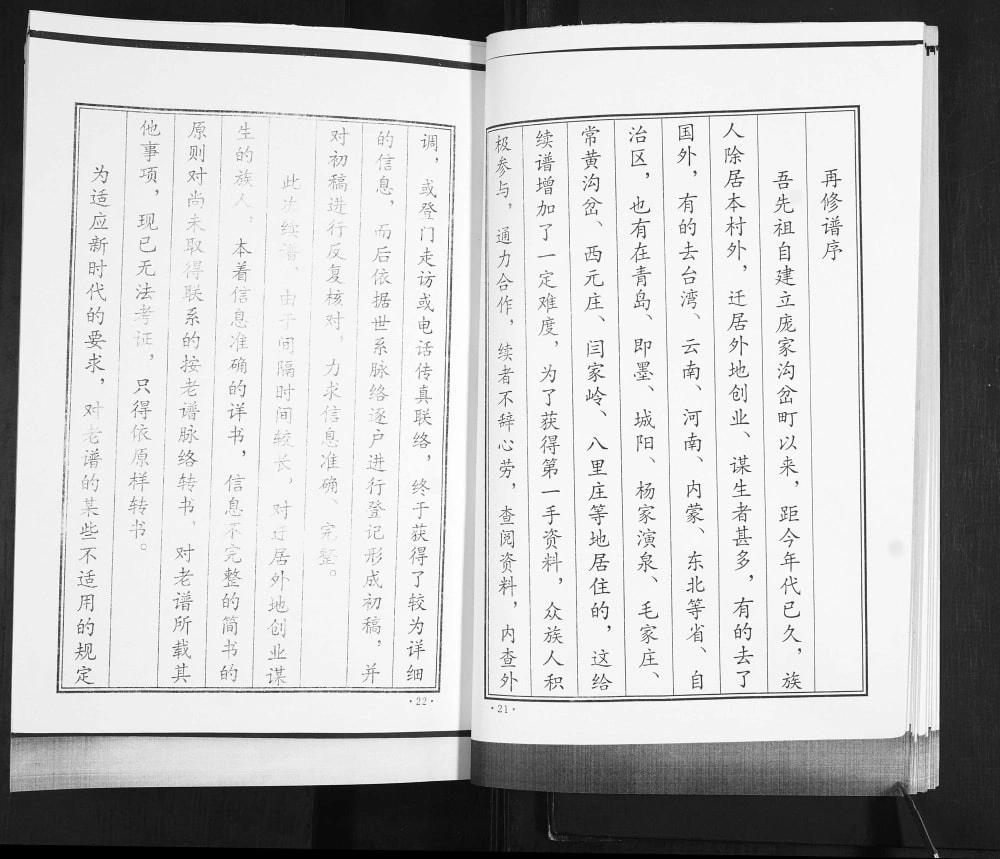 再修谱序
吾先祖自建立庞家沟岔町以来，距今年代已久，族
人除居本村外，迁居外地创业、谋生者甚多，有的去了
国外，有的去台湾、云南、河南、内蒙、东北等省、自
治区，也有在青岛、即墨、城阳、杨家演泉、毛家庄、
常黄沟岔、西元庄、闫家岭、八里庄等地居住的，这给
续谱增加了一定难度，为了获得第一手资料，众族人积
极参与，通力合作，续者不辞心劳，查阅资料，内查外
·21·
调，或登门走访或电话传真联络，终于获得了较为详细
的信息，而后依据世系脉络逐户进行登记形成初稿，并
对初稿进行反复核对，力求信息准确、完整。
此次续谱，由于间隔时间较长，对迁居外地创业谋
生的族人，本着信息准确的详书，信息不完整的简书的
原则对尚未取得联系的按老谱脉络转书，对老谱所载其
他事项，现已无法考证，只得依原样转书。
为适应新时代的要求，对老谱的某些不适用的规定
·22·